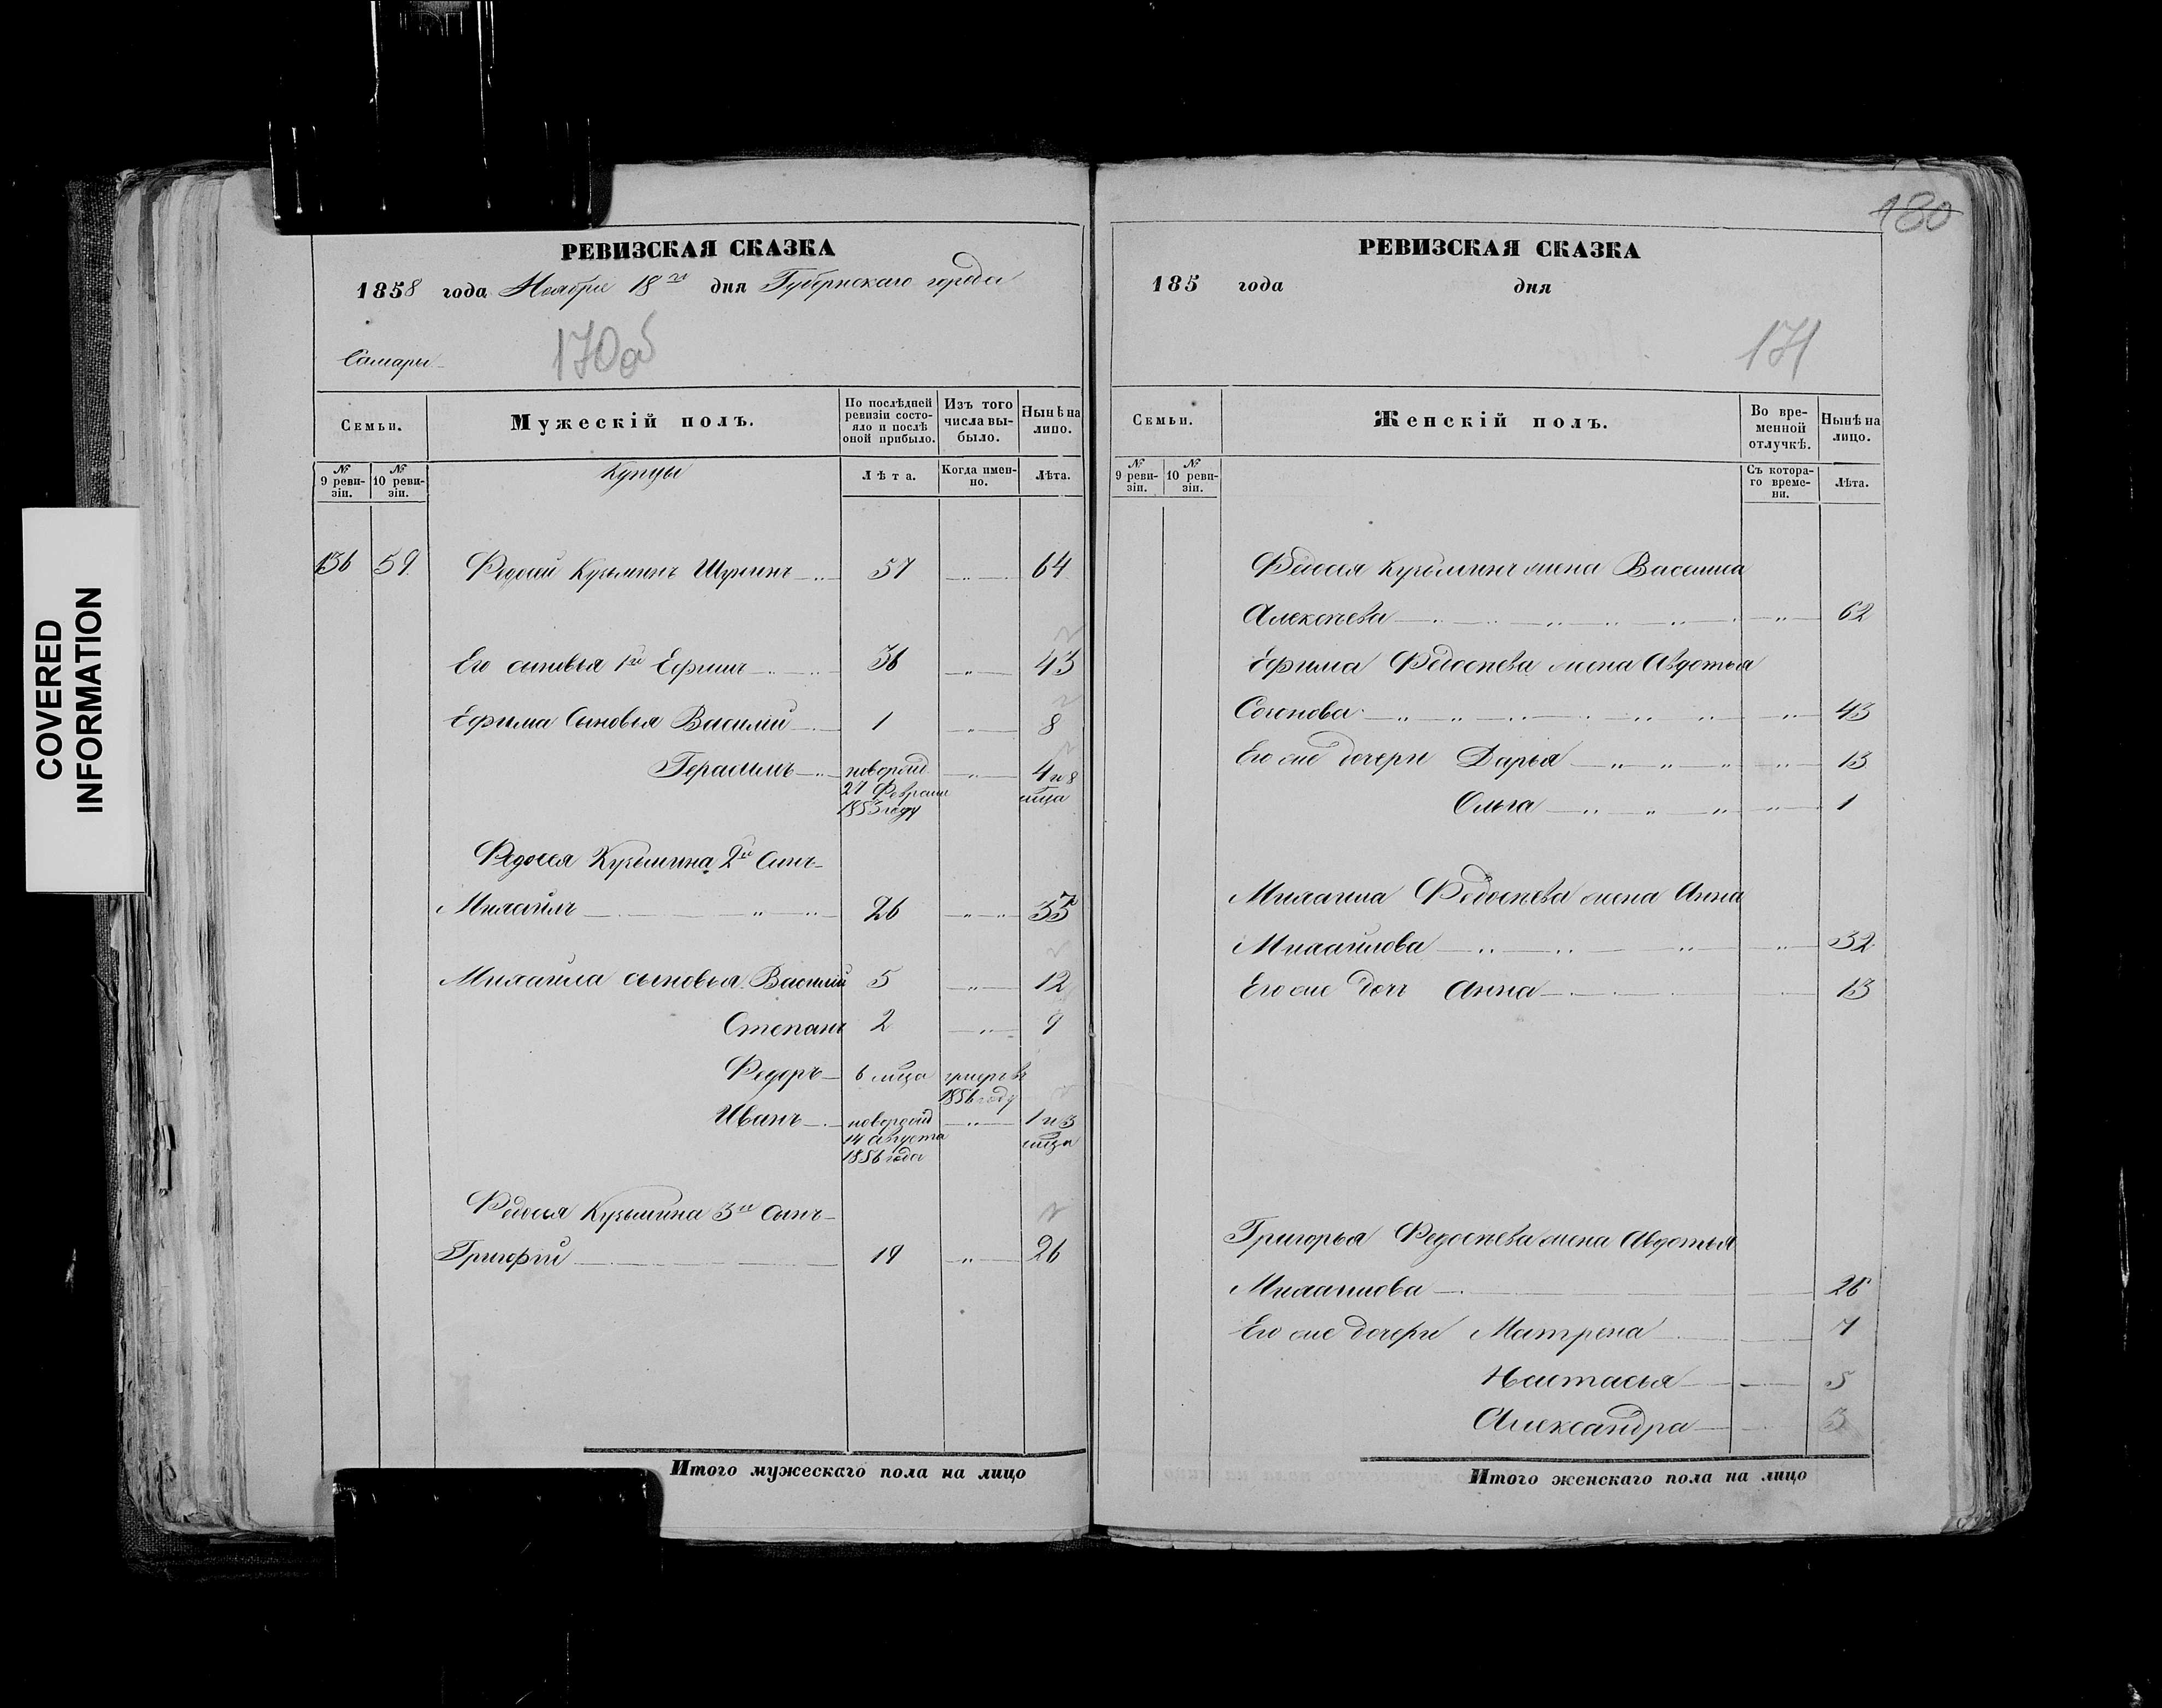 COVERED
INFORMATION
РЕВИЗСКАЯ СКАЗКА
1858 года Ноября 18го дня Губернскаго города
Самары
170об
Семьи.
Мужескій полъ.
По послѣдней ревизіи состояло и послѣ оной прибыло.
Изъ того числа выбыло.
Нынѣ на лицо.
№ 9 ревизіи.
№ 10 ревизіи.
Купцы
Лѣта.
Когда именно.
Лѣта.
136 59 Федосей Кузьминъ 57 64
Его сыновья 1й Ефимъ 36 43
Ефима Сыновья Василій 1 8
Герасимъ новорожд 4 и 8
27 Февраля мѣца
1853 году
Федосея Кузьмина 2й Сынъ
Михаилъ 26 33
Михаила сыновья Василій 5 12
Степанъ 2 9
Федоръ 6 мѣца умеръ въ
1856 году
Иванъ новорожд 1 и 3
14 Августа мѣца
1856 года
Федосея Кузьмина 3й Сынъ
Григорій 19 26
Итого мужескаго пола на лицо
180
РЕВИЗСКАЯ СКАЗКА
185 года дня
171
Семьи.
Женскій полъ.
Во временной отлучкѣ.
Нынѣ на лицо.
№ 9 ревизіи.
№ 10 ревизіи.
Съ котораго времени.
Лѣта.
Федосея Кузьмина жена Васелиса
Алексѣева 62
Ефима Федосѣева жена Авдотья
43
Его же дочери Дарья 13
Ольга 1
Михаила Федосѣева жена Анна
Михайлова 32
Его же дочь Анна 13
Григорья Федосѣева жена Авдотья
Михайлова 28
Его же дочери Матрена 7
Настасья 5
Александра 3
Итого женскаго пола на лицо